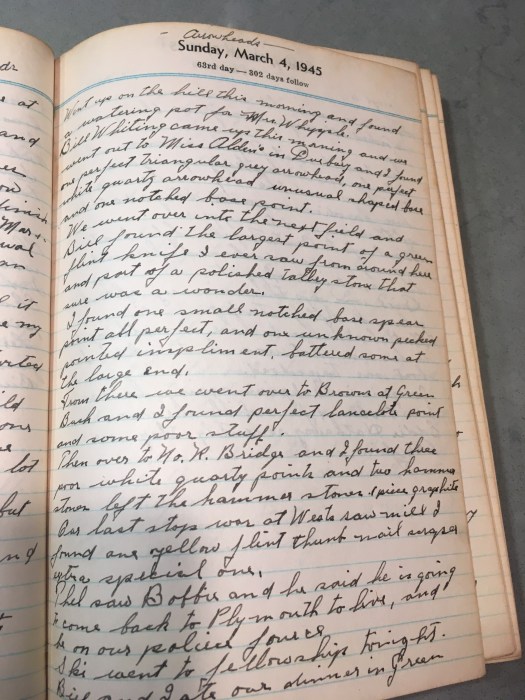 - Arrowheads -
Sunday, March 4, 1945
63rd day — 302 days follow
Went up on the hill this morning and found
a watering pot for Mrs Whipple.
Bill Whiting came up this morning and we
went out to Miss Alden's in Duxbury and I found
one perfect triangular grey arrowhead, one perfect
white quartz arrowhead unusual shaped base
and one notched base point.
We went over into the next field and
Bill found the largest point of a green
flint knife I ever saw from around here
and part of a polished tally stone that
sure was a wonder.
I found one small notched base spear
point all perfect, and one unknown pecked
pointed inspliment, battered some at
the large end.
From there we went over to Browns at Green
Bush and I found perfect lancelite point
and some poor stuff.
Then over to No. R. Bridge and I found three
poor white quartz points and two hammer
stones left the hammer stones. 1 piece graphite
Our last stop was at Wests saw mill I
found one yellow flint thumb nail scraper
extra special one.
Phil saw Bobbie and he said he is going
to come back to Plymouth to live, and
be on our police force
Ski went to fellowship tonight.
Bill and I ate our dinner in Green
at
and
it
my
lot
but
and